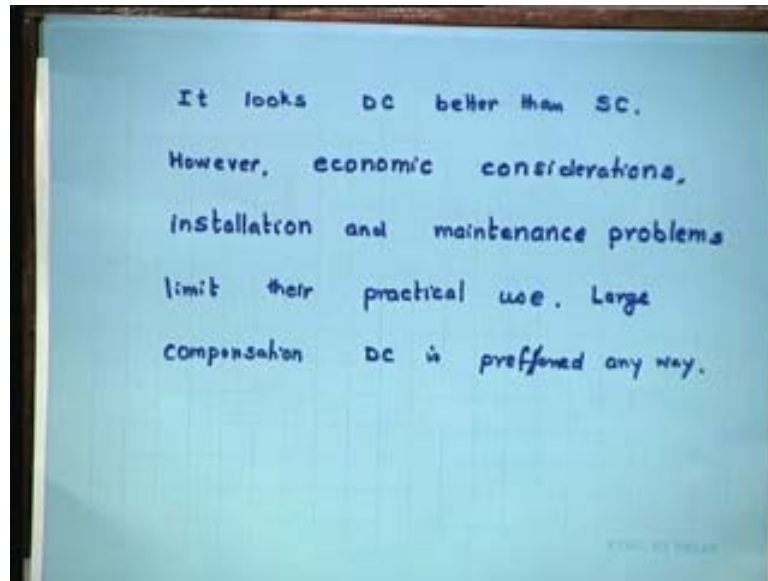 It looks DC better than SC.
However, economic considerations,
installation and maintenance problems
limit their practical use. Large
compensation DC is preffered any way.